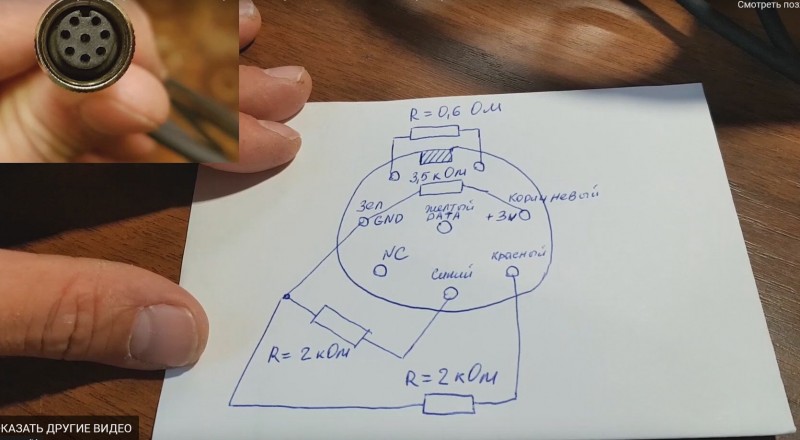 Смотреть поз
R = 0,6 Ом
3,5 кОм
Зел
GND
Желтый
DATA
Коричневый
+3V
NC
Синий
Красный
R = 2 кОм
R = 2 кОм
КАЗАТЬ ДРУГИЕ ВИДЕО